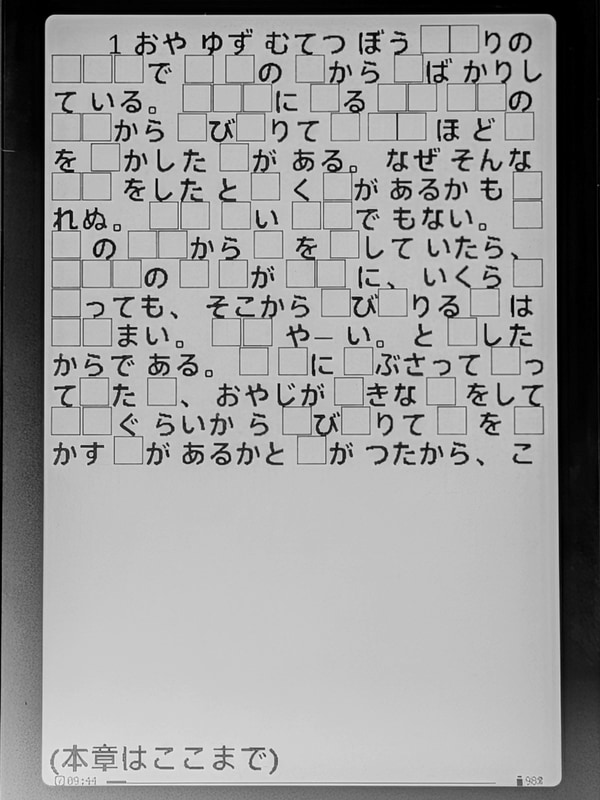 1 おや ゆず むてつ ぼう □□りの
□□□で □ □の □から □ば かりし
て いる。 □□□に □る □□ □□の
□□から □び□りて □ □□ ほ ど □
を □かした □が ある。 なぜ そんな
□□ をした と □ く □が あるか も □
れぬ。 □□ □い □□で もない。 □
□ の □□から □ を □して いたら、
□□□の □ □が □□ に、 いくら □
□っても、 そこから □び□りる □ は
□□まい。 □□ や― い。 と □した
からで ある。 □ □に □ぶさって □っ
て□た □、 おやじが □きな □ をして
□□ぐ らいか ら □び□りて □ を □
かす □が あるかと □が つたから、 こ
(本章はここまで)
09:44
98%